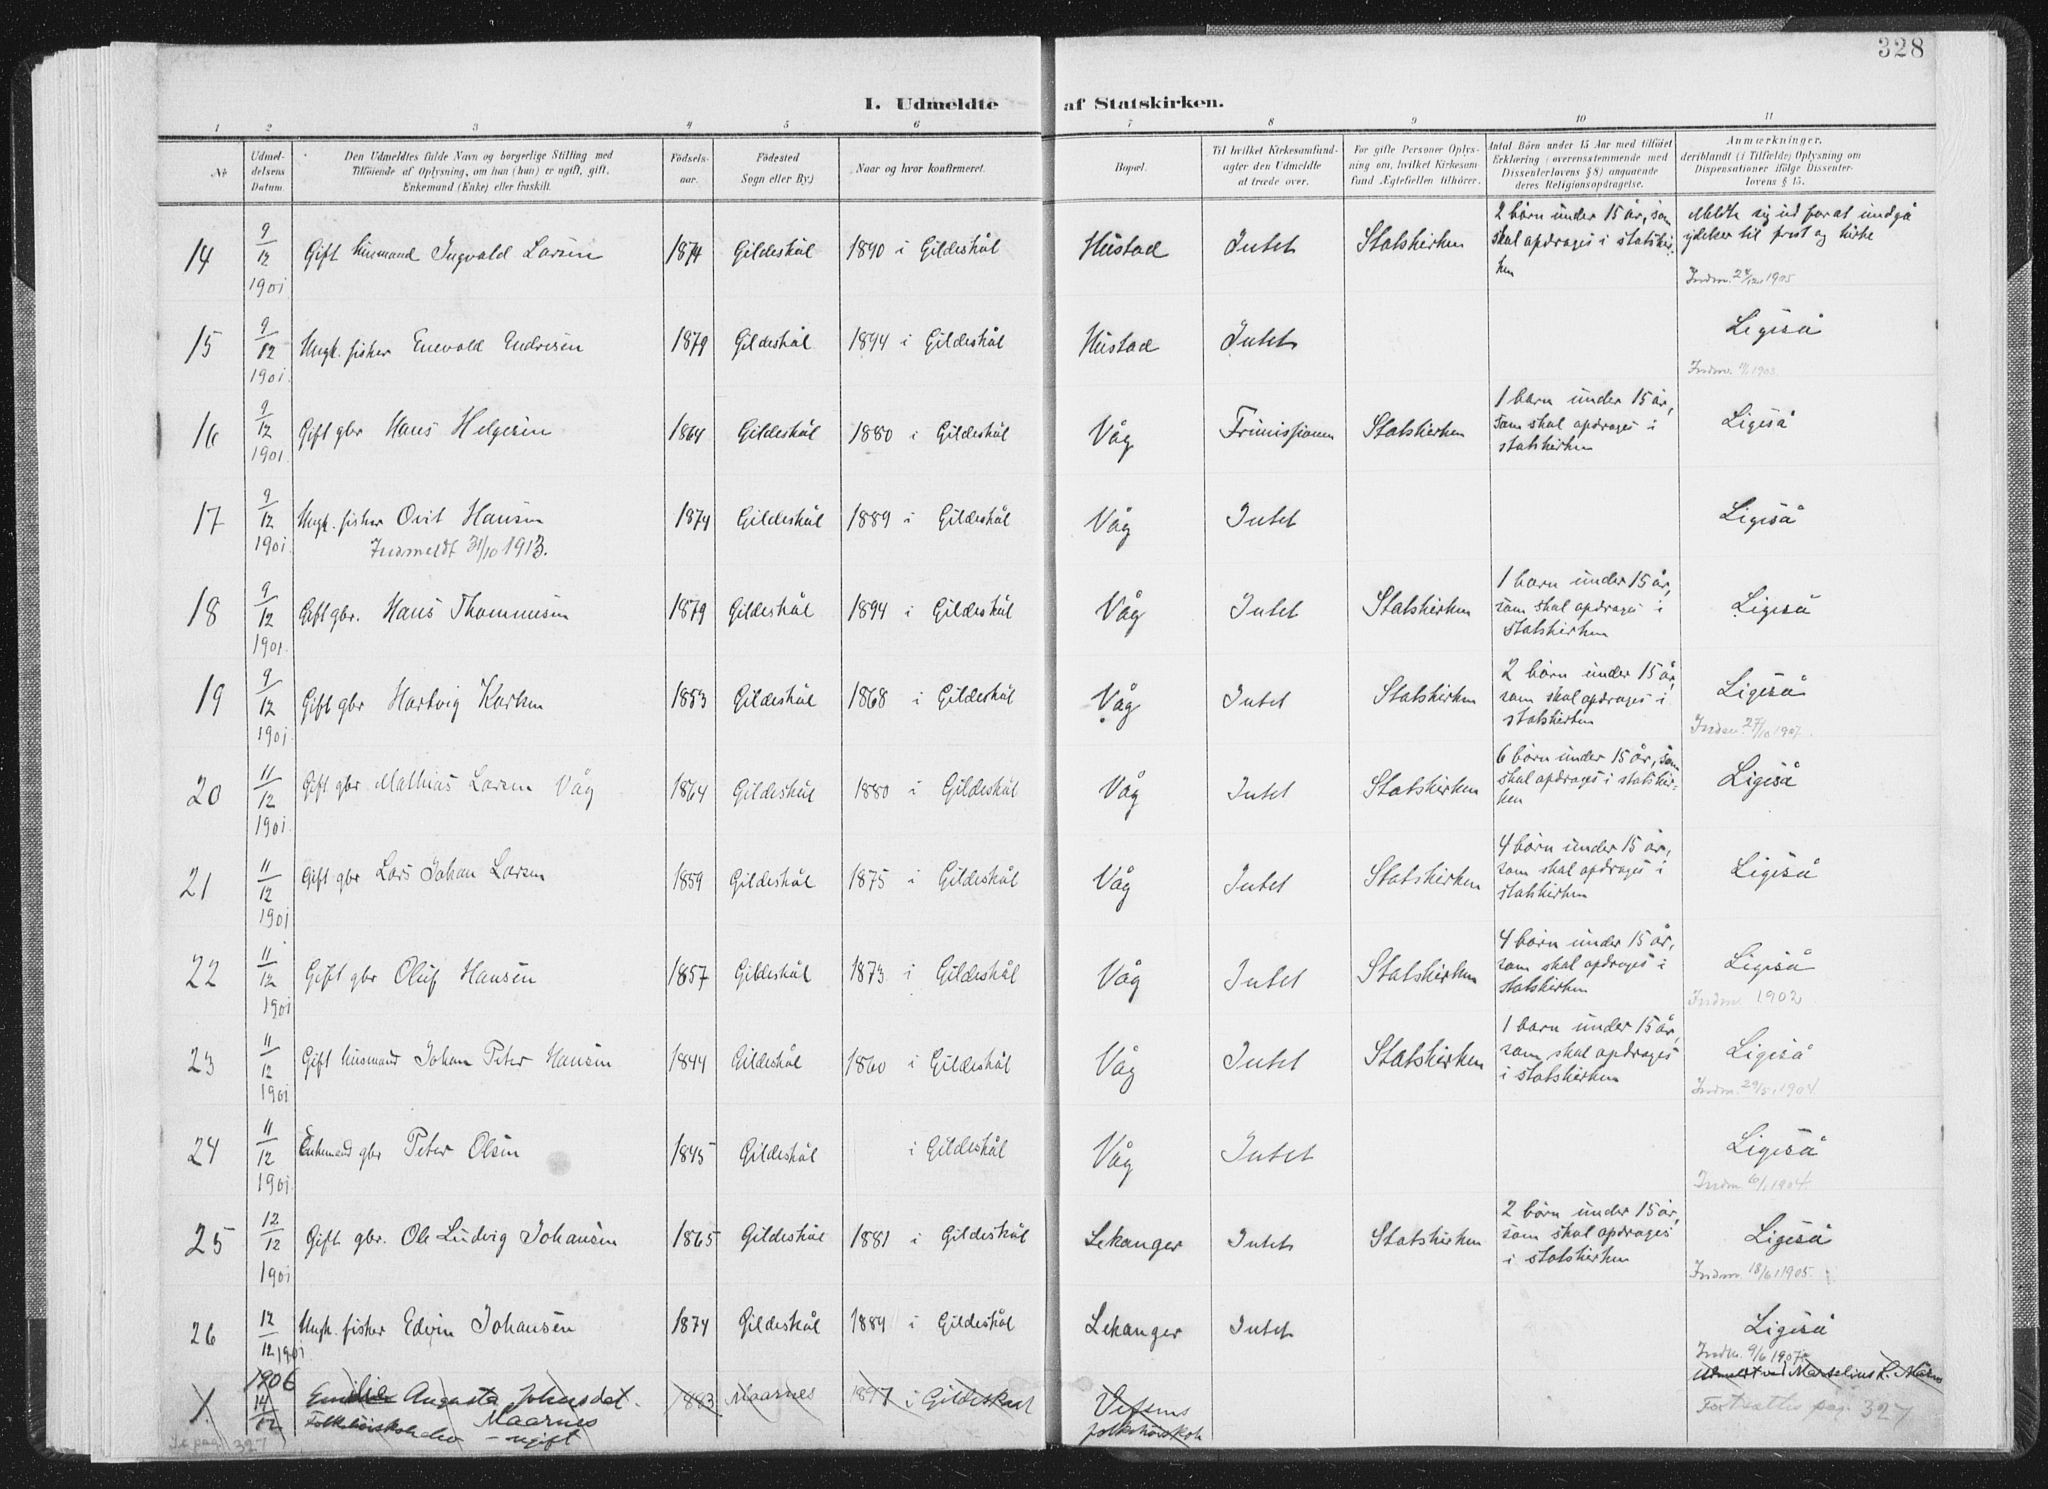 328
I. Udmeldte af Statskirken.
1 2 3 4 5 6 7 8 9 10 11
Nr
Udmel-
delsens
Datum.
Den Udmeldtes fulde Navn og borgerlige Stilling med
Tilføiende af Oplysning, om han (hun) er ugift, gift,
Enkemand (Enke) eller fraskilt.
Fødsels-
aar.
Fødested
Sogn eller By)
Naar og hvor konfirmeret.
Bopæl.
Til hvilket Kirkesamfund-
agter den Udmeldte
at træde over.
For gifte Personer Oplys-
ning om, hvilket Kirkesam-
fund Ægtefællen tilhører.
Antal Börn under 15 Aar med tilföiet
Erklæring (overensstemmende med
Dissenterlovens § 8) angaaende
deres Religionsopdragelse.
Anmærkninger,
deriblandt (i Tilfælde) Oplysning om
Dispensationer ifølge Dissenter-
lovens § 15.
14 9/12 1901 Gift husmand Ingvald Larsen 1874 Gildeskål 1890 i Gildeskål Hustad Intet Statskirken
2 børn under 15 år, som
skal opdrages i statskir-
ken
Meldte sig ud for at undgå
ydelser til prest og kirke
Indm. 24/12 1905
15 9/12 1901. Ungk. fisker Enevold Endresen 1879 Gildeskål 1894 i Gildeskål Hustad Intet Ligeså
Indm. 1903.
16 9/12 1901. Gift gbr Hans Helgesen 1864 Gildeskål 1880 i Gildeskål Våg Frimissionen Statskirken
1 barn under 15 år,
som skal opdrages i
statskirken
Ligeså
17 9/12 1901 Ungk. fisker Ovit Hansen 1874 Gildeskål 1889 i Gildeskål Våg Intet Ligeså
Indmeldt 31/10 1913.
18 9/12 1901. Gift gbr. Hans Thommesen 1879 Gildeskål 1894 i Gildeskål Våg Intet Statskirken
1 barn under 15 år,
som skal opdrages i
statskirken
Ligeså
19 9/12 1901 Gift gbr Hartvig Karlsen 1853 Gildeskål 1868 i Gildeskål Våg Intet Statskirken
2 børn under 15 år,
som skal opdrages i
statskirken
Ligeså
Indm. 27/10 1907.
20 11/12 1901. Gift gbr Mathias Larsen Våg 1864 Gildeskål 1880 i Gildeskål Våg Intet Statskirken
6 børn under 15 år, som
skal opdrages i statskir-
ken
Ligeså
21 11/12 1901 Gift gbr Lars Johan Larsen 1859 Gildeskål 1875 i Gildeskål Våg Intet Statskirken
4 børn under 15 år,
som skal opdrages i
statskirken
Ligeså
22 11/12 1901 Gift gbr Oluf Hansen 1857 Gildeskål 1873 i Gildeskål Våg Intet Statskirken
4 børn under 15 år,
som skal opdrages i
statskirken
Ligeså
Indm. 1902
23 11/12 1901 Gift husmand Johan Peter Hansen 1844 Gildeskål 1860 i Gildeskål Våg Intet Statskirken
1 barn under 15 år,
som skal opdrages
i statskirken
Ligeså
Indm. 29/5 1904
24 11/12 1901. Enkemand gbr Peter Olsen 1845 Gildeskål i Gildeskål Våg Intet Ligeså
Indm 6/1 1904.
25 12/12 1901 Gift gbr. Ole Ludvig Johansen 1865 Gildeskål 1881 i Gildeskål Sekanger Intet Statskirken
2 børn under 15 år,
som skal opdrages
i statskirken
Ligeså
Indm. 18/6 1905.
26 12/12 1901 Ungk. fisker Edvin Johansen 1874 Gildeskål 1889 i Gildeskål Sekanger Intet Ligeså
Indm. 9/6 1907
1. 1906 14/12 Emilie Augusta Johnsdat. 1883 Maarnes 1897 i Gildeskaal Vefsens
Maarnes
ugift
folkehøiskole
Udmeldt ved Marselius L.
Fortsættes pag. 327
Se pag. 327